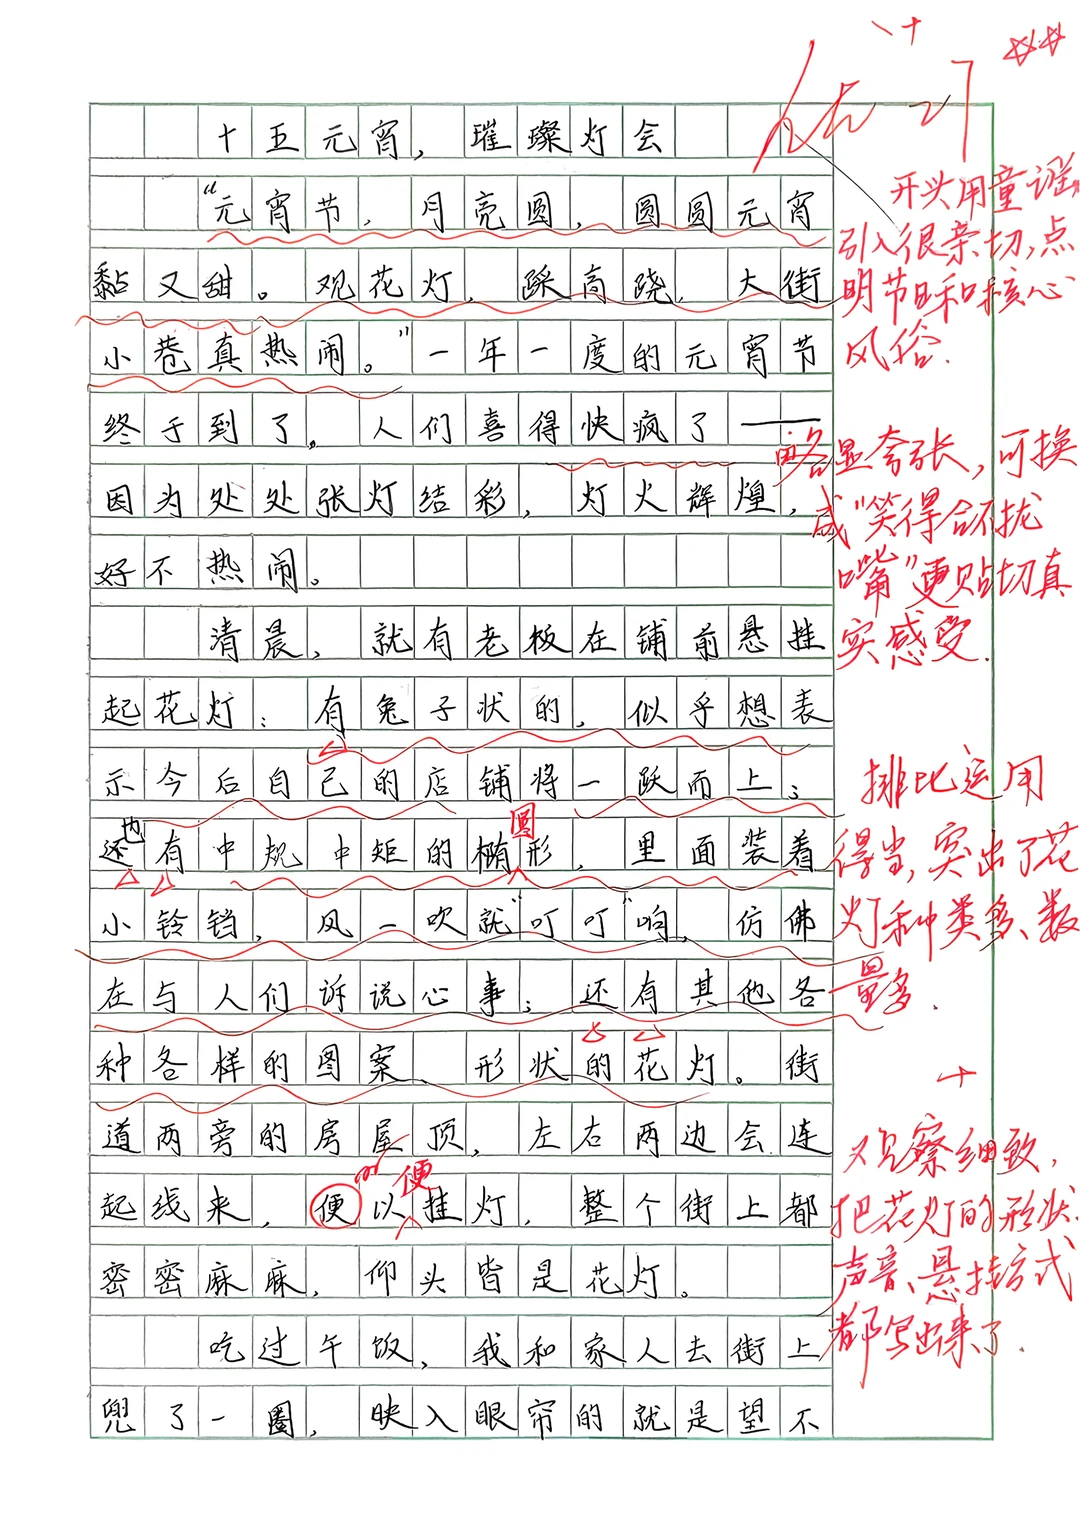 十五元宵，璀璨灯会
“元宵节，月亮圆，圆圆元宵
黏又甜。观花灯，踩高跷，大街
小巷真热闹。”一年一度的元宵节
终于到了。人们喜得快疯了——
因为处处张灯结彩，灯火辉煌，
好不热闹。
清晨，就有老板在铺前悬挂
起花灯：有兔子状的，似乎想表
示今后自己的店铺将一跃而上；
也
还有中规中矩的椭形，里面装着
圆
小铃铛，风一吹就“叮叮”响，仿佛
在与人们诉说心事；还有其他各
种各样的图案、形状的花灯。街
道两旁的房屋顶，左右两边会连
起线来，便以挂灯，整个街上都
便
密密麻麻，仰头皆是花灯。
吃过午饭，我和家人去街上
兜了一圈，映入眼帘的就是望不
优
开头用童谣
引入很亲切，点
明节日和核心
风俗.
略显夸张，可换
成“笑得合不拢
嘴”更贴切真
实感受.
排比运用
得当，突出了花
灯种类多、数
量多.
观察细致，
把花灯的形状、
声音、悬挂方式
都写出来了.